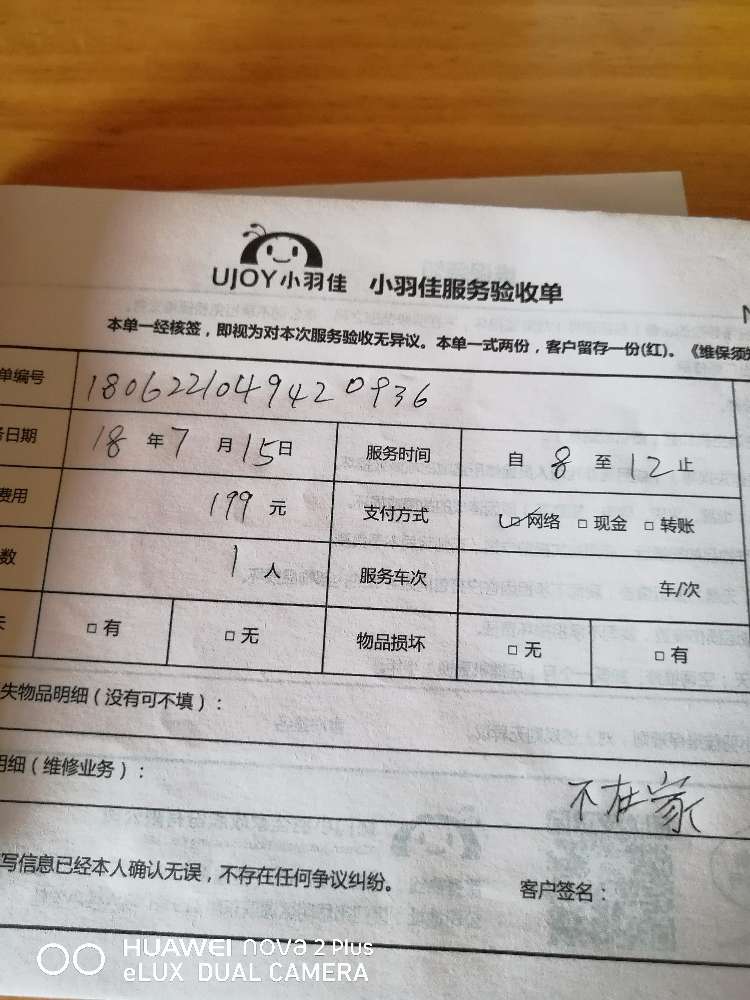 UJOY小羽佳 小羽佳服务验收单
本单一经核签，即视为对本次服务验收无异议。本单一式两份，客户留存一份(红)。《维保须
单编号 1806221049420936
日期 18 年 7 月 15 日 服务时间 自 8 至 12 止
费用 199 元 支付方式 □ 网络 □ 现金 □ 转账
数 1 人 服务车次 车/次
□ 有 □ 无 物品损坏 □ 无 □ 有
失物品明细（没有可不填）：
明细（维修业务）：
不在家
写信息已经本人确认无误，不存在任何争议纠纷。 客户签名：
HUAWEI nova 2 Plus
eLUX DUAL CAMERA